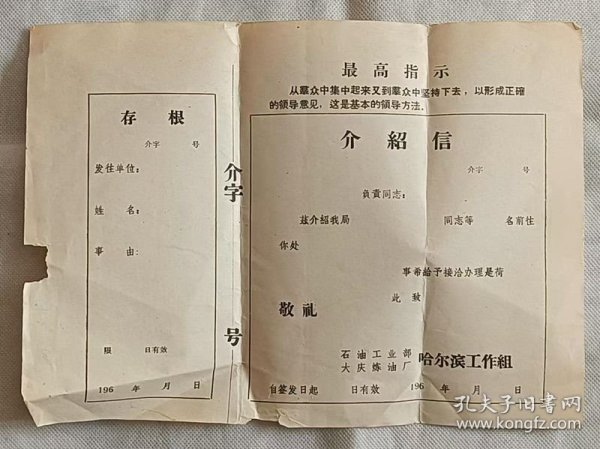 存根
介字 号
发往单位：
姓 名：
事 由：
限 日有效
196 年 月 日
介字 号
最高指示
从羣众中集中起来又到羣众中坚持下去，以形成正確
的领导意见，这是基本的领导方法。
介紹信
介字 号
负責同志：
兹介紹我局 同志等 名前往
你处
事希給予接洽办理是荷
此 致
敬礼
石油工业部
大庆炼油厂 哈尔滨工作組
自签发日起 日有效 196 年 月 日
孔夫子旧书网
www.kongfz.com